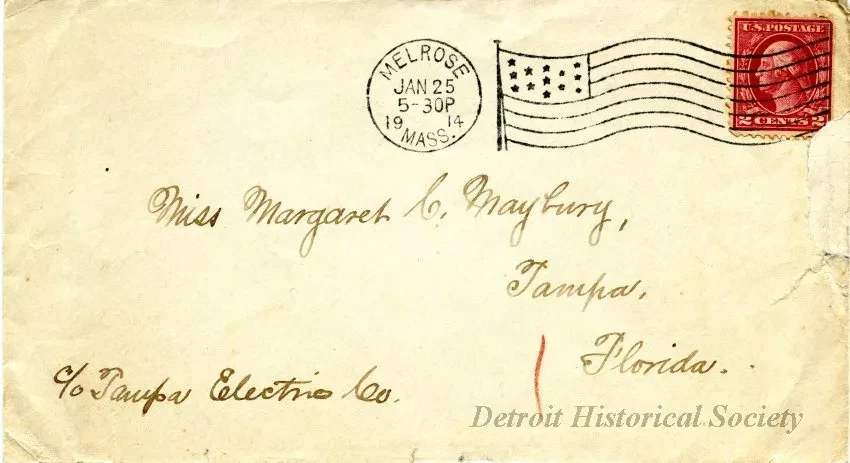 MELROSE
JAN 25
5-30P
19 14
MASS.
U.S. POSTAGE
2 CENTS 2
Miss Margaret C. Maybury,
Tampa,
Florida.
c/o Tampa Electric Co.
Detroit Historical Society